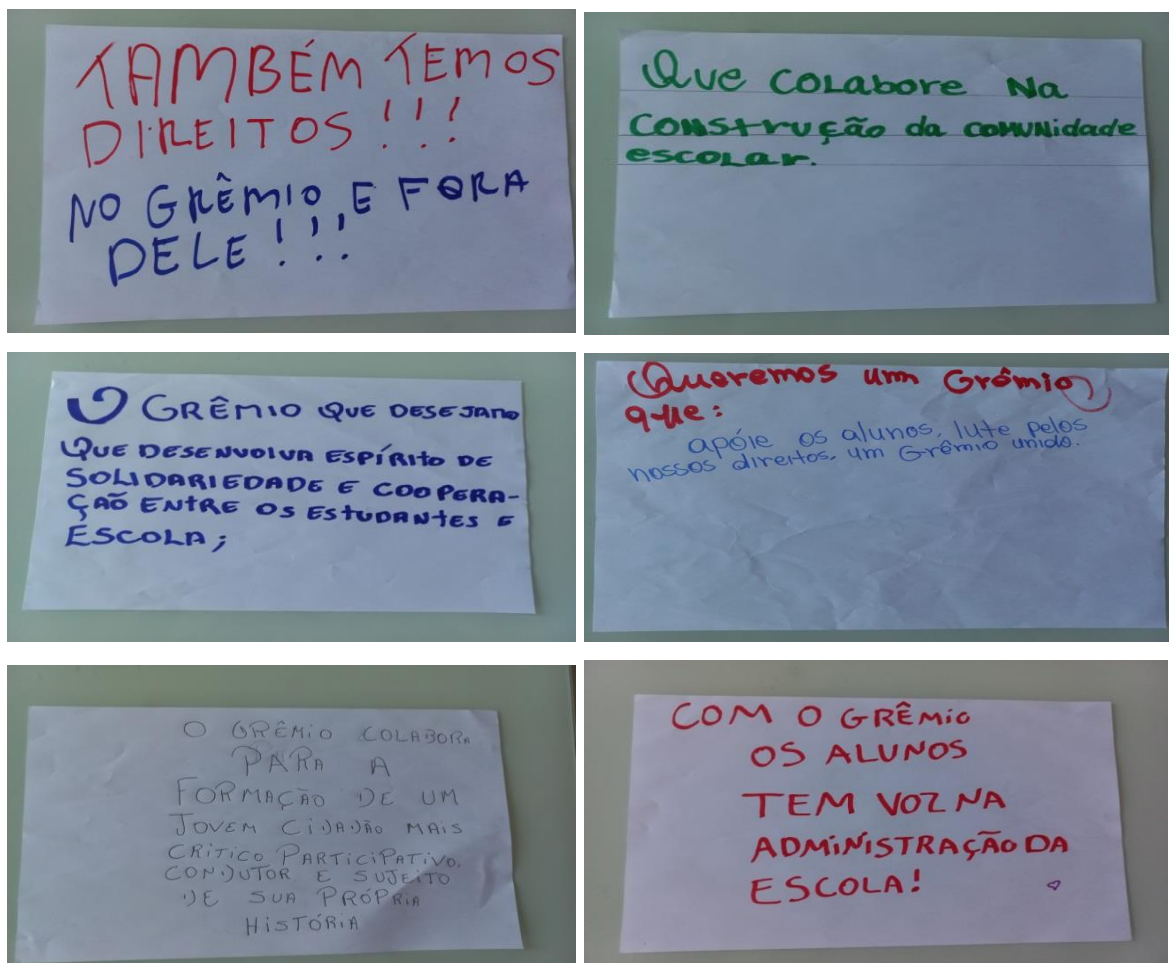 TAMBÉM TEMOS
DIREITOS!!!
NO GRÊMIO E FORA
DELE!!!
Que colabore na
construção da comunidade
escolar.
O GRÊMIO QUE DESEJAMO
QUE DESENVOLVA ESPÍRITO DE
SOLIDARIEDADE E COOPERA-
ÇAÕ ENTRE OS ESTUDANTES E
ESCOLA;
Queremos um Grêmio
que:
apóie os alunos, lute pelos
nossos direitos, um Grêmio unido.
O GRÊMIO COLABORA
PARA A
FORMAÇÃO DE UM
JOVEM CIDADÃO MAIS
CRITICO PARTICIPATIVO,
CONDUTOR E SUJEITO
DE SUA PRÓPRIA
HISTÓRIA
COM O GRÊMIO
OS ALUNOS
TEM VOZ NA
ADMINISTRAÇÃO DA
ESCOLA!